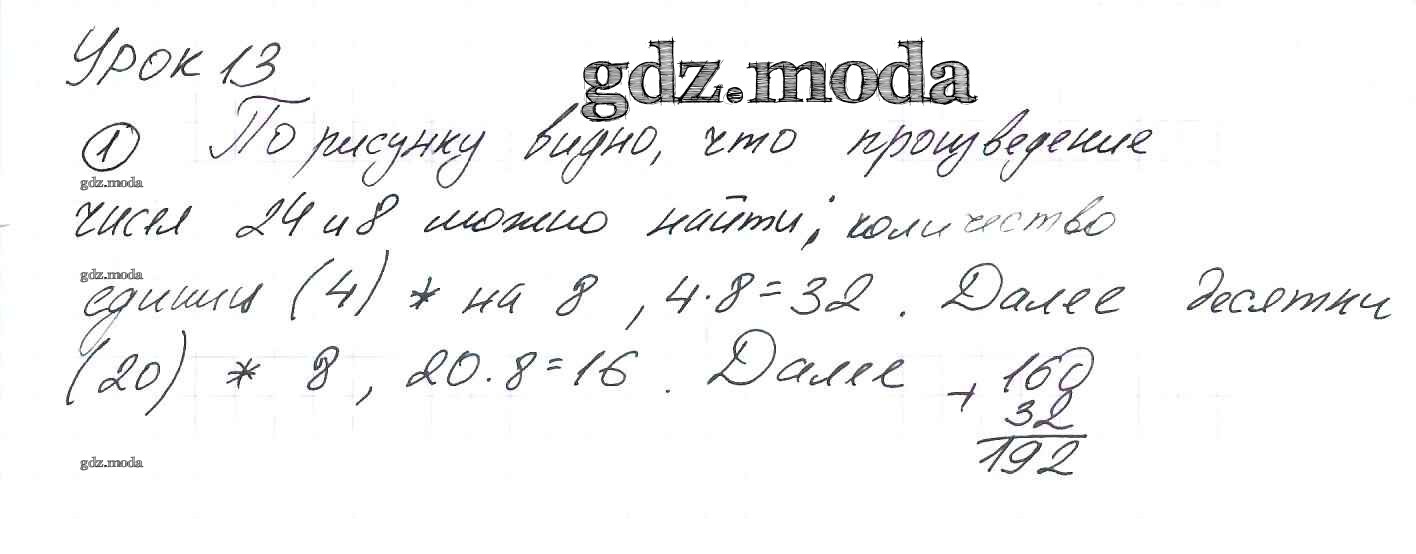 Урок 13
gdz.moda
① По рисунку видно, что произведение
gdz.moda
чисел 24 и 8 можно найти; количество
gdz.moda
единиц (4) * на 8, 4·8=32. Далее десятки
(20) * 8, 20·8=16. Далее + 160
32
192
gdz.moda